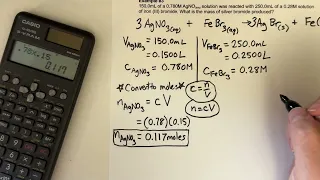 Example B3
150.0mL of a 0.780M AgNO₃(aq) solution was reacted with 250.0mL of a 0.28M solution
of iron (III) bromide. What is the mass of silver bromide produced?
3 AgNO₃(aq) + FeBr₃(aq) → 3AgBr(s) + Fe(
V AgNO₃ = 150.0mL
= 0.1500L
C AgNO₃ = 0.780M
V FeBr₃ = 250.0mL
= 0.2500L
C FeBr₃ = 0.28M
*Convert to moles*
n AgNO₃ = cV
= (0.78)(0.15)
n AgNO₃ = 0.117moles
c = n/V
n = cV
CASIO
.78×.15
0.117